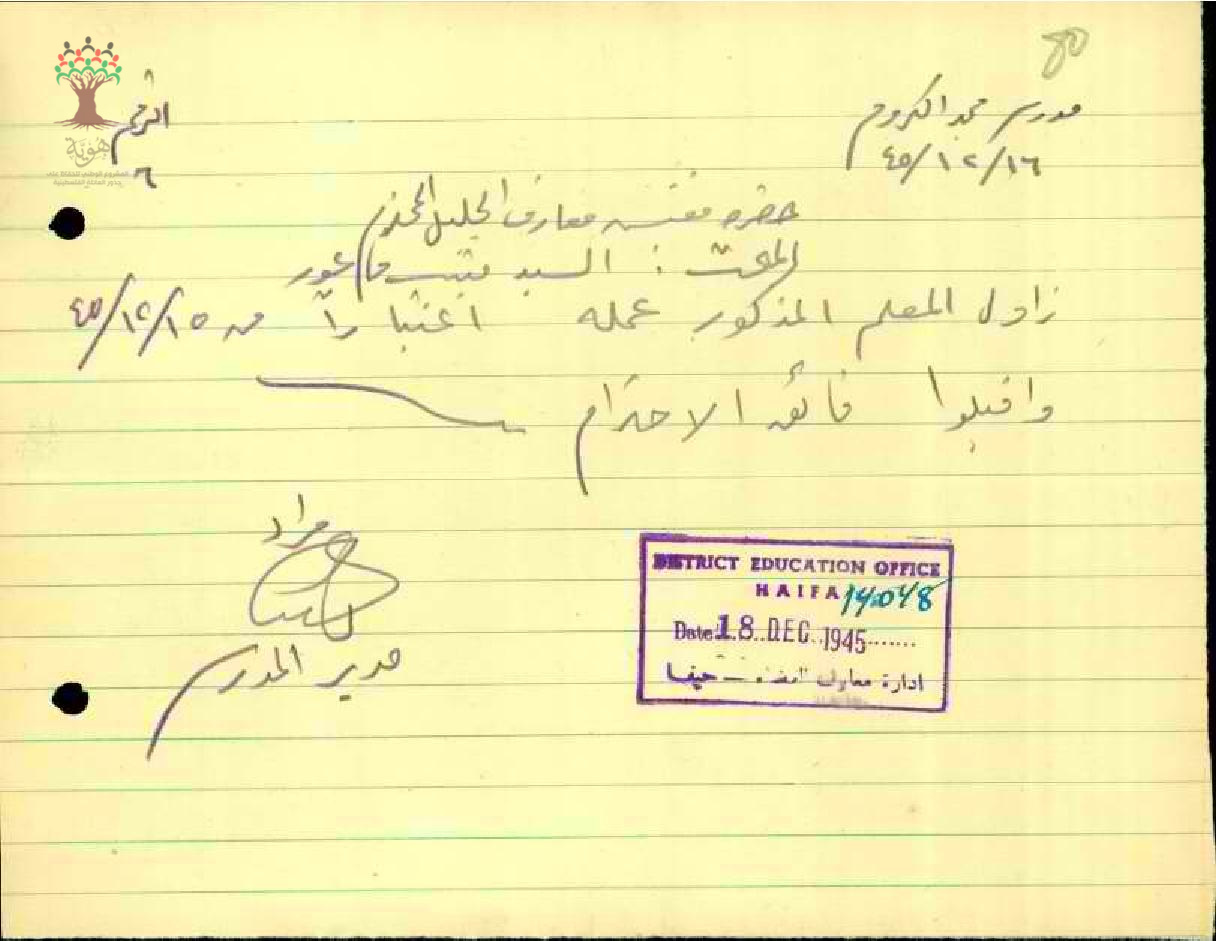 80
مدرسة مجد الكروم
الرقم
١٦/١٢/٤٥
٦
هُوِيَّة
المشروع الوطني للحفاظ على
جذور العائلة الفلسطينية
حضرة مفتش معارف الجليل المحترم
المبحث : السيد فاعور
زاول المعلم المذكور عمله اعتباراً من ١٥/١٢/٤٥
واقبلوا فائق الاحترام
مراد
مدير المدرسة
DISTRICT EDUCATION OFFICE
HAIFA 14048
Date 18 DEC 1945
ادارة معارف حيفا